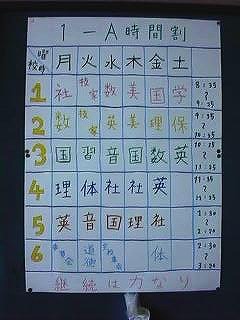 1-A時間割
曜 校時 月 火 水 木 金 土
1 社 技家 数 美 国 学 8:35 〜 9:25
2 数 技家 英 美 理 保 9:35 〜 10:25
3 国 習 音 国 数 英 10:35 〜 11:25
4 理 体 社 社 英 11:35
5 英 音 国 理 社 1:30 〜 2:20
6 道徳 体 2:30 〜 3:20
継続は力なり